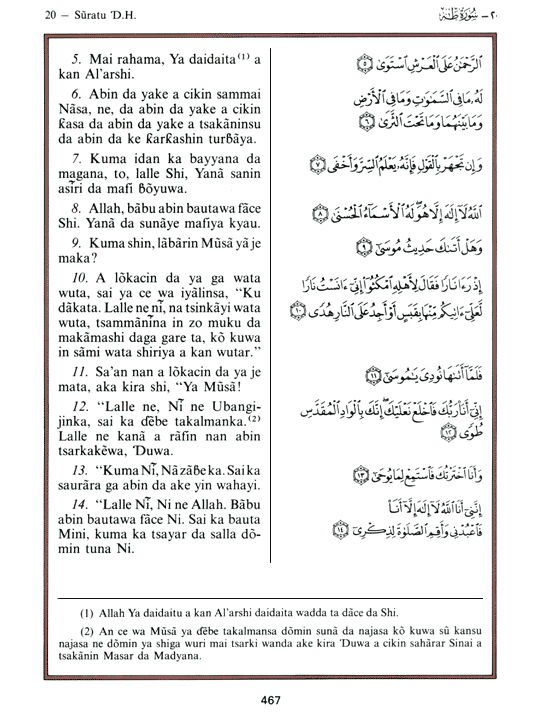 20 — Sūratu Ɗ.H.
٢٠ — سُورَةُ طٰهٰ
5. Mai rahama, Ya daidaita(1) a
kan Al'arshi.
6. Abin da yake a cikin sammai
Nãsa, ne, da abin da yake a cikin
ƙasa da abin da yake a tsakãninsu
da abin da ke ƙarƙashin turɓãya.
7. Kuma idan ka bayyana da
magana, to, lalle Shi, Yanã sanin
asĩri da mafi ɓõyuwa.
8. Allah, bãbu abin bautawa fãce
Shi. Yanã da sunãye mafiya kyau.
9. Kuma shin, lãbãrin Mũsã yã je
maka?
10. A lõkacin da ya ga wata
wuta, sai ya ce wa iyãlinsa, “Ku
dãkata. Lalle ne nĩ, na tsinkãyi wata
wuta, tsammãnĩna in zo muku da
makãmashi daga gare ta, kõ kuwa
in sãmi wata shiriya a kan wutar.”
11. Sa'an nan a lõkacin da ya je
mata, aka kira shi, “Ya Mũsã!
12. “Lalle ne, Nĩ ne Ubangi-
jinka, sai ka ɗẽbe takalmanka.(2)
Lalle ne kanã a rãfin nan abin
tsarkakẽwa, Ɗuwa.
13. “Kuma Nĩ, Nã zãɓe ka. Sai ka
saurãra ga abin da ake yin wahayi.
14. “Lalle Nĩ, Ni ne Allah. Bãbu
abin bautawa fãce Ni. Sai ka bauta
Mini, kuma ka tsayar da salla dõ-
min tuna Ni.
الرَّحْمَٰنُ عَلَى الْعَرْشِ اسْتَوَىٰ ۝٥
لَهُ مَا فِي السَّمَاوَاتِ وَمَا فِي الْأَرْضِ
وَمَا بَيْنَهُمَا وَمَا تَحْتَ الثَّرَىٰ ۝٦
وَإِن تَجْهَرْ بِالْقَوْلِ فَإِنَّهُ يَعْلَمُ السِّرَّ وَأَخْفَى ۝٧
اللَّهُ لَا إِلَٰهَ إِلَّا هُوَ ۖ لَهُ الْأَسْمَاءُ الْحُسْنَىٰ ۝٨
وَهَلْ أَتَاكَ حَدِيثُ مُوسَىٰ ۝٩
إِذْ رَأَىٰ نَارًا فَقَالَ لِأَهْلِهِ امْكُثُوا إِنِّي آنَسْتُ نَارًا
لَّعَلِّي آتِيكُم مِّنْهَا بِقَبَسٍ أَوْ أَجِدُ عَلَى النَّارِ هُدًى ۝١٠
فَلَمَّا أَتَاهَا نُودِيَ يَا مُوسَىٰ ۝١١
إِنِّي أَنَا رَبُّكَ فَاخْلَعْ نَعْلَيْكَ ۖ إِنَّكَ بِالْوَادِ الْمُقَدَّسِ
طُوًى ۝١٢
وَأَنَا اخْتَرْتُكَ فَاسْتَمِعْ لِمَا يُوحَىٰ ۝١٣
إِنَّنِي أَنَا اللَّهُ لَا إِلَٰهَ إِلَّا أَنَا
فَاعْبُدْنِي وَأَقِمِ الصَّلَاةَ لِذِكْرِي ۝١٤
(1) Allah Ya daidaitu a kan Al'arshi daidaita wadda ta dãce da Shi.
(2) An ce wa Mũsã ya ɗẽbe takalmansa dõmin sunã da najasa kõ kuwa sũ kansu
najasa ne dõmin ya shiga wuri mai tsarki wanda ake kira Ɗuwa a cikin sahãrar Sinai a
tsakãnin Masar da Madyana.
467